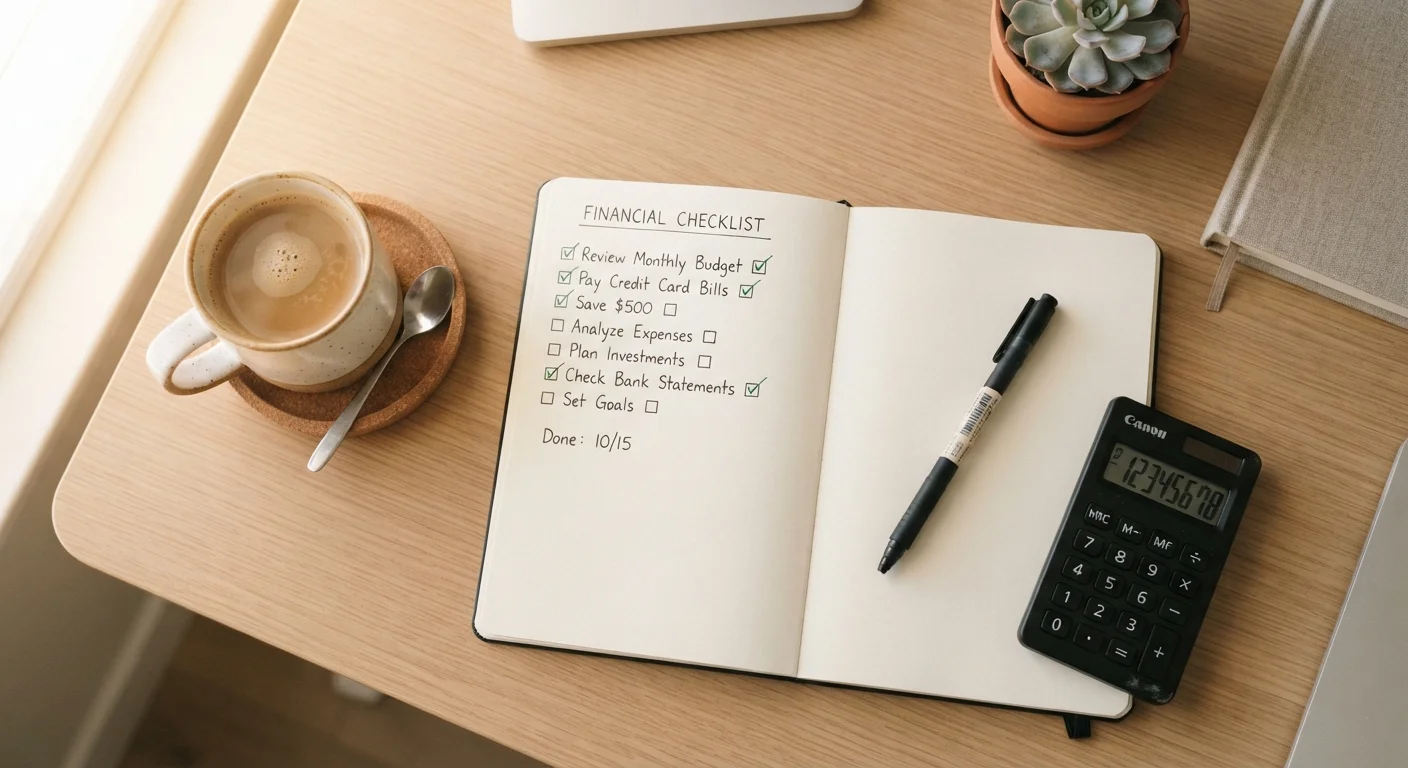 FINANCIAL CHECKLIST
☑ Review Monthly Budget ☑
☑ Pay Credit Card Bills ☑
☑ Save $500 ☐
☐ Analyze Expenses ☐
☐ Plan Investments ☐
☑ Check Bank Statements ☑
☐ Set Goals ☐
Done: 10/15
Canon
12345678
M-
÷
7 8 9 ×
4 5 6 −
1 2 3
0 . = +